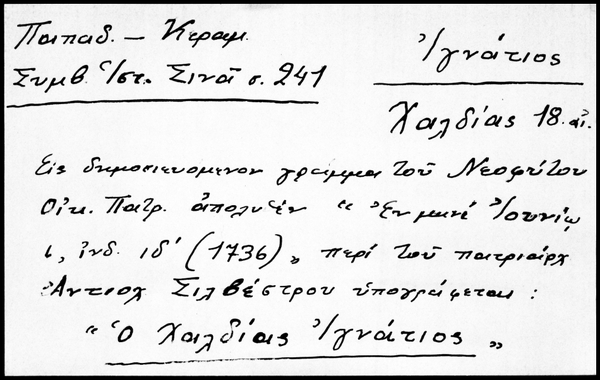 Παπαδ. – Κεραμ.
Συμβ. Ἱστ. Σινᾶ σ. 241
Ἰγνάτιος
Χαλδίας 18. αἰ.
Εἰς δημοσιευόμενον γράμμα τοῦ Νεοφύτου
Οἰκ. Πατρ. ἀπολυθέν “ ἐν μηνί Ἰουνίῳ
ι, ἰνδ. ιδ' (1736) „ περί τοῦ πατριάρχ
Ἀντιοχ Σιλβέστρου ὑπογράφεται :
“ Ὁ Χαλδίας Ἰγνάτιος „